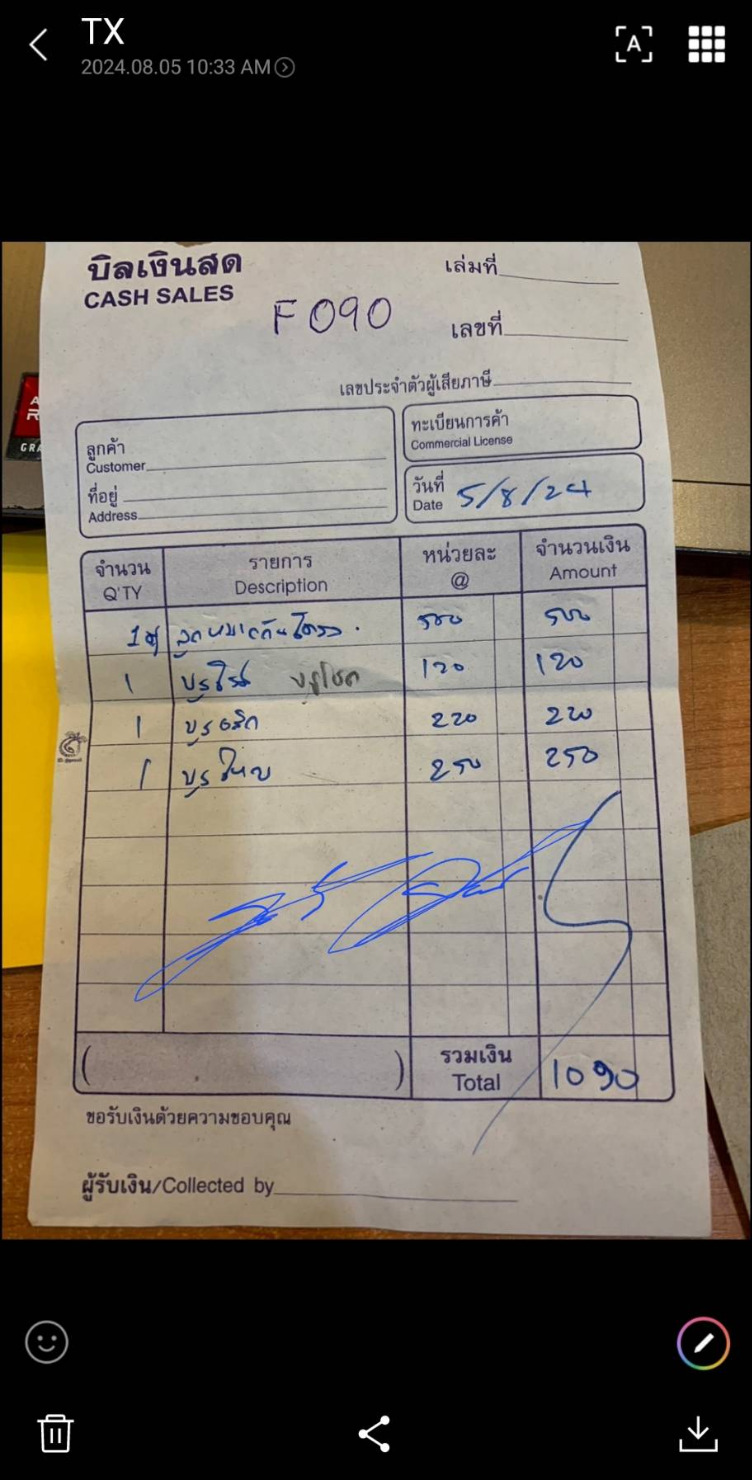 TX
2024.08.05 10:33 AM
A
บิลเงินสด
CASH SALES
เล่มที่
F 090
เลขที่
เลขประจำตัวผู้เสียภาษี
ลูกค้า
Customer
ที่อยู่
Address
ทะเบียนการค้า
Commercial License
วันที่
Date 5/8/24
จำนวน รายการ หน่วยละ จำนวนเงิน
Q'TY Description @ Amount
500 500
1 120 120
1 220 220
1 250 250
รวมเงิน
Total 1090
( )
ขอรับเงินด้วยความขอบคุณ
ผู้รับเงิน/Collected by